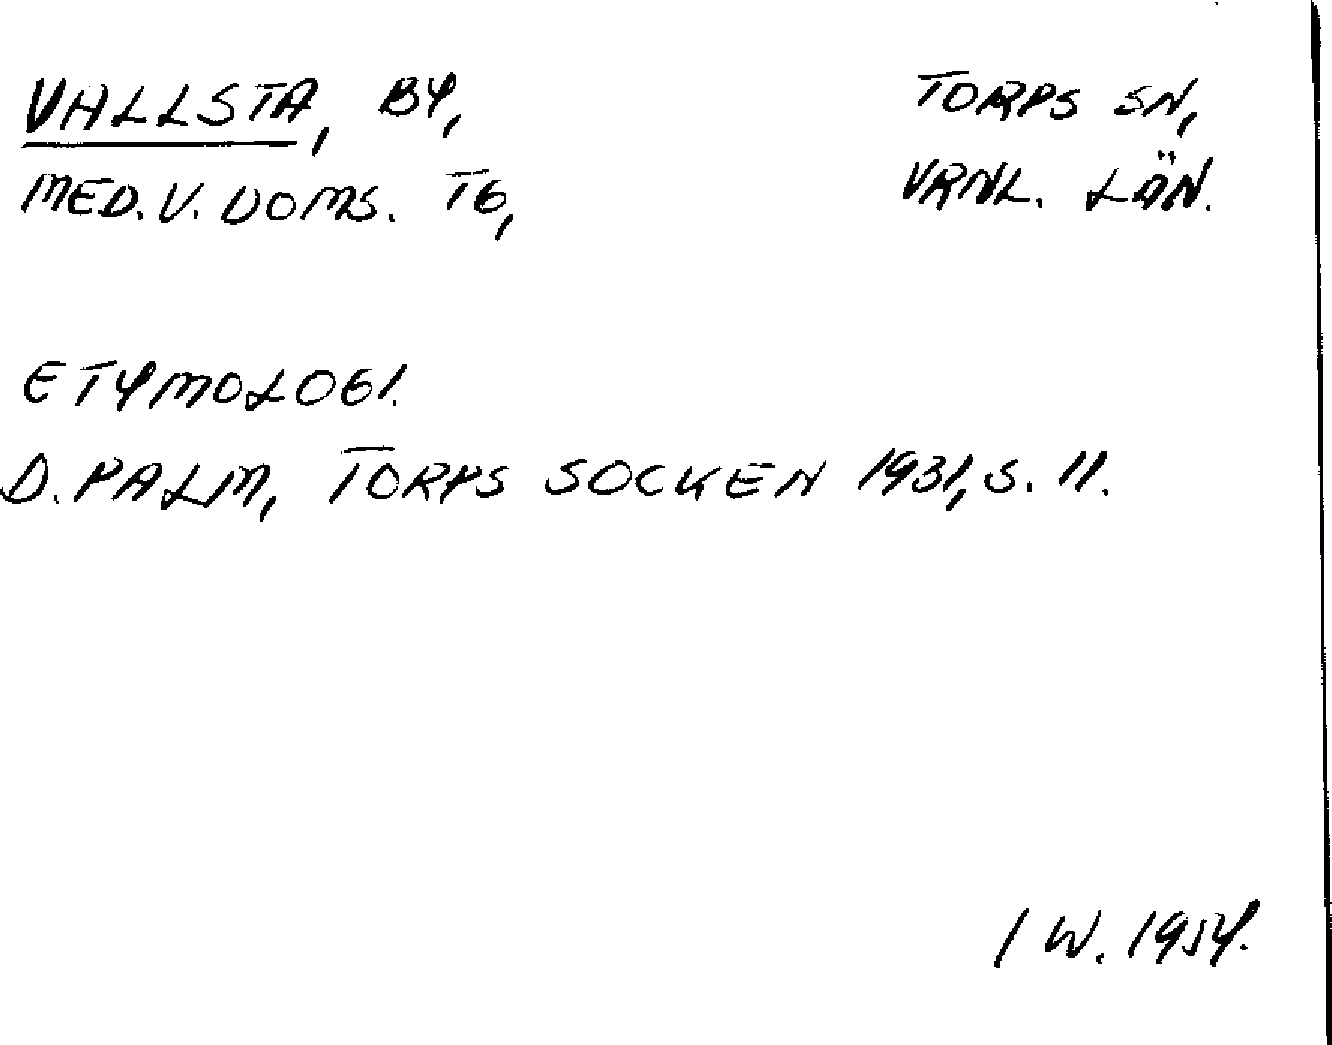 VALLSTA, BY, TORPS SN,
MED. V. DOMS. TG, VRNL. LÄN.
ETYMOLOGI.
D. PALM, TORPS SOCKEN 1931, S. 11.
I W. 1954.